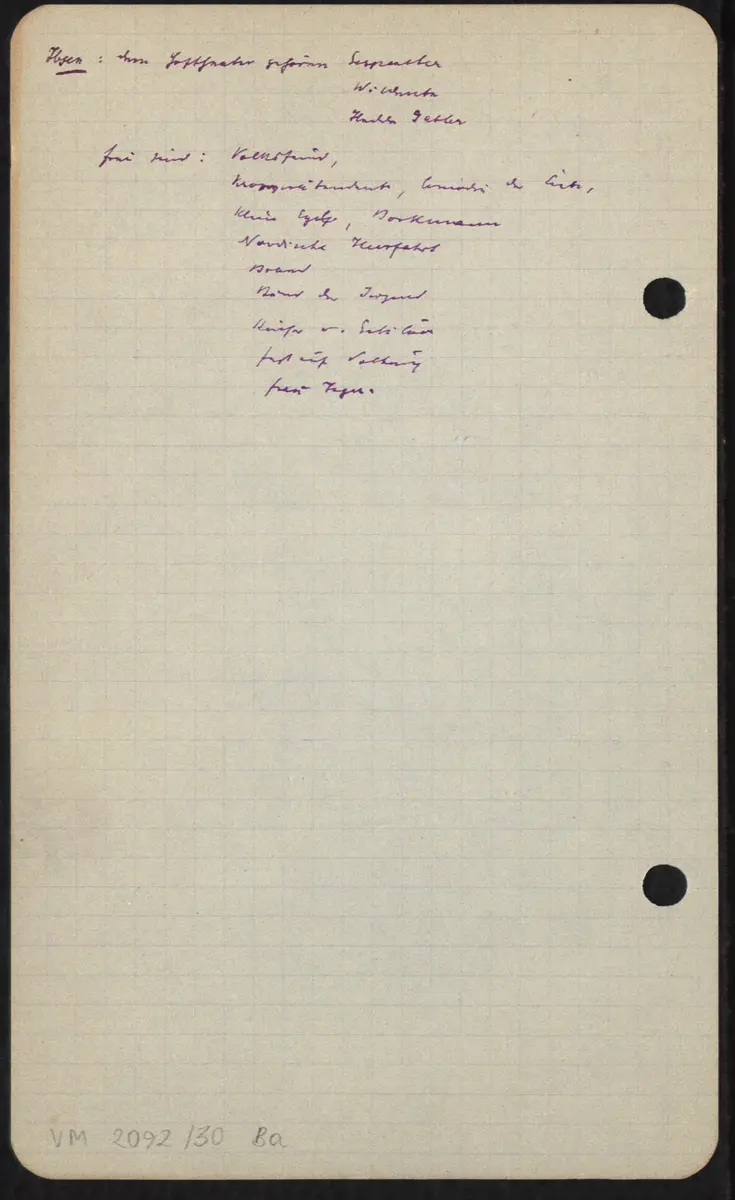 Ibsen : dem Hoftheater gehören Gespenster
Wildente
Hedda Gabler
frei sind : Volksfeind,
Kronprätendent, Comödie der Liebe,
Klein Eyolf, Borkmann
Nordische Heerfahrt
Brand
Bund der Jugend
Kaiser u. Galiläer
Fest auf Solhaug
Frau Inger.
VM 2092/30 Ba